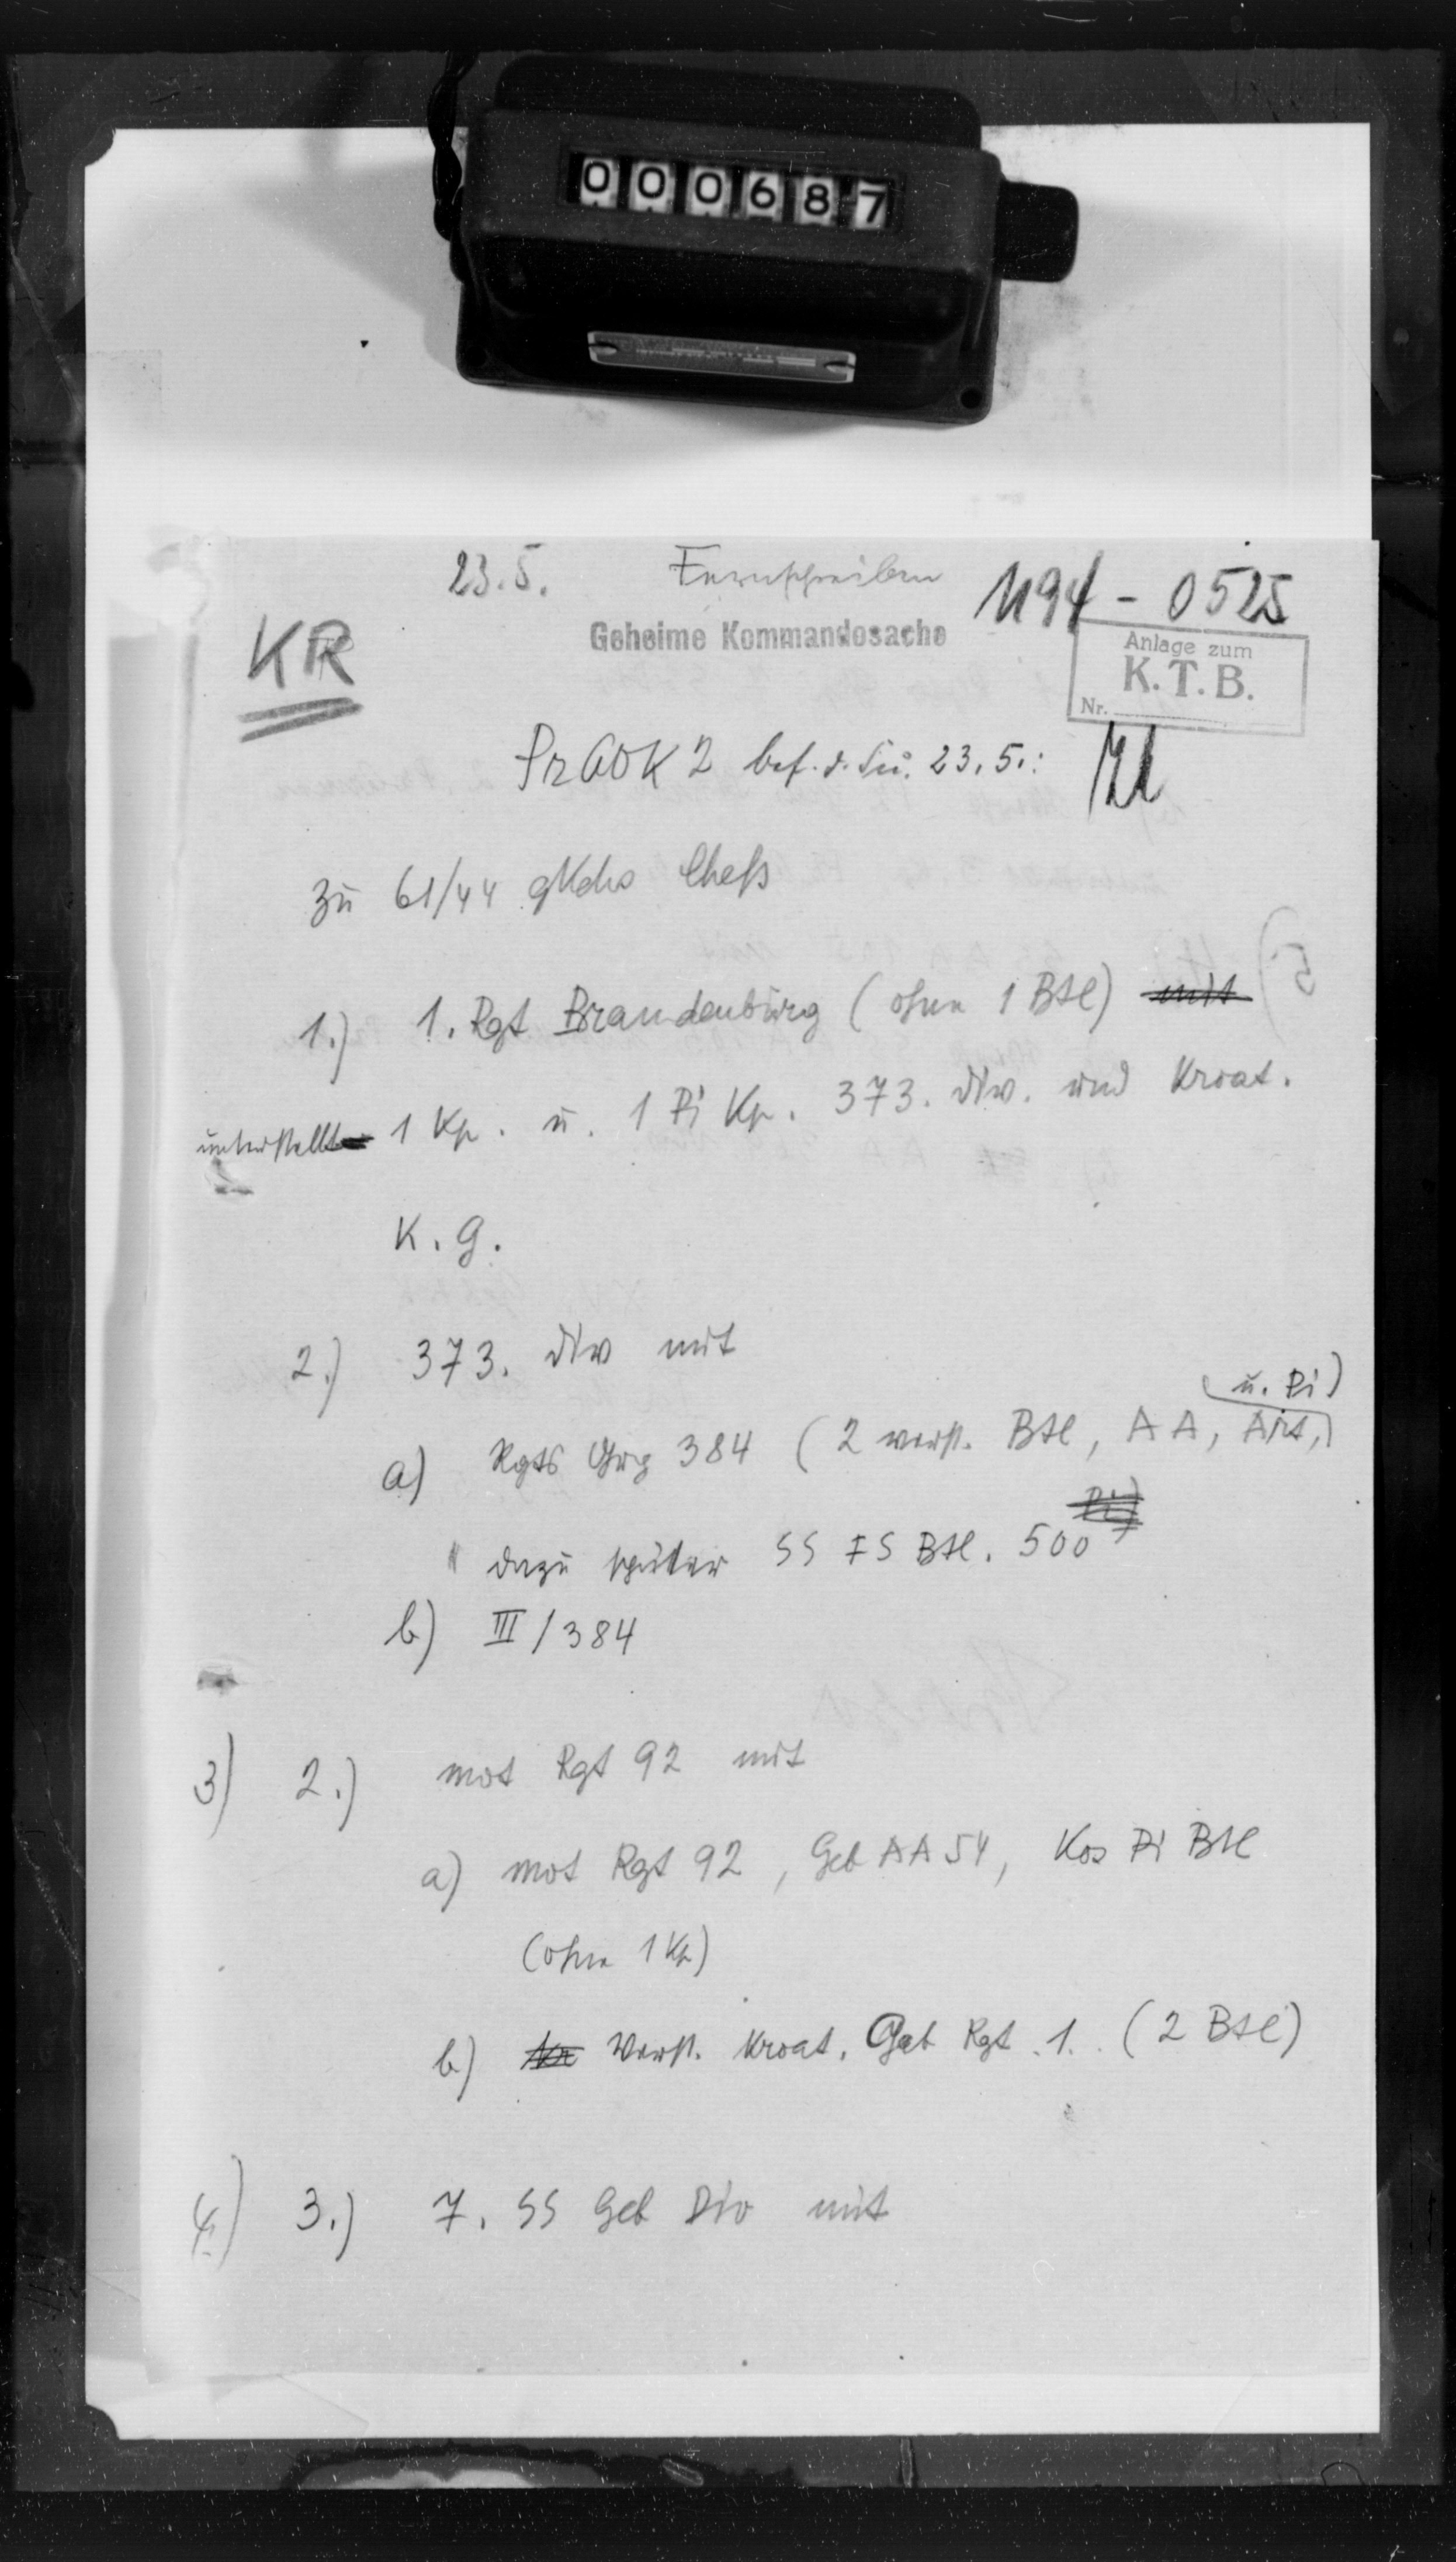 000687
23.5. Fernschreiben 1194 - 0525
Geheime Kommandosache
KR
Anlage zum
K.T.B.
Nr.
Pz AOK 2 bef. d. Fü. 23.5.:
zu 61/44 gKdos Chefs
1.) 1. Rgt Brandenburg (ohne 1 Btl) mit
unterstellt 1 Kp. u. 1 Pi Kp. 373. Div. und Kroat.
K.G.
2.) 373. Div mit
u. Pi)
a) Rgts Grp 384 (2 verst. Btl, AA, Art,)
Pi)
dazu später SS FS Btl. 500
b) III/384
3) 2.) mot Rgt 92 mit
a) mot Rgt 92, Geb AA 54, Kos Pi Btl
(ohne 1 Kp)
b) Verst. Kroat. Geb Rgt. 1. (2 Btl)
4.) 3.) 7. SS Geb Div mit